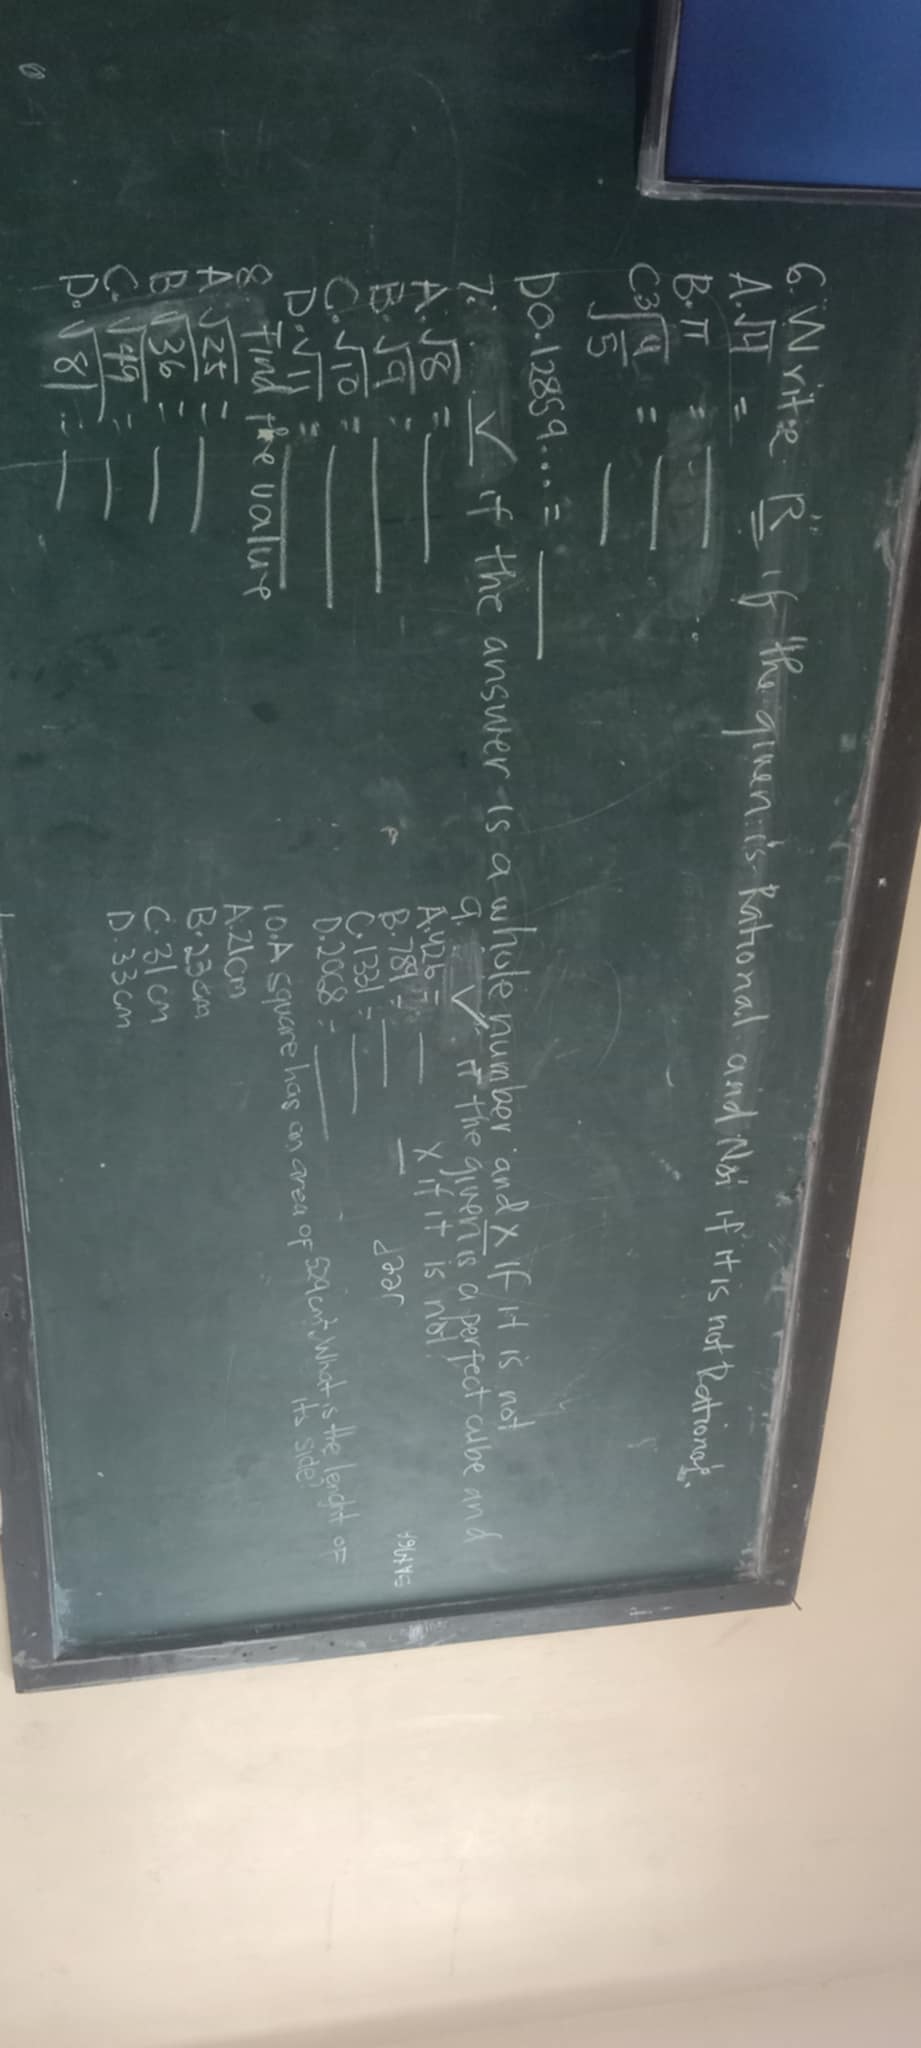 6. Write R if the given is Rational and NR if it is not Rational.
A. √4 =
B. π =
C. ∛4 =
√5
D. 0.12859... =
7. ✓ if the answer is a whole number and X if it is not
A. √8 =
B. √9 =
C. √10 =
D. √11 =
8. Find the value
A. √25 =
B. √36 =
C. √49 =
D. √81 =
9. ✓ if the given is a perfect cube and
X if it is not
A. 426 =
B. 781 =
C. 1331 =
D. 2068 =
10. A square has an area of 529cm². What is the lenght of
its side?
A. 21cm
B. 23cm
C. 31cm
D. 33cm